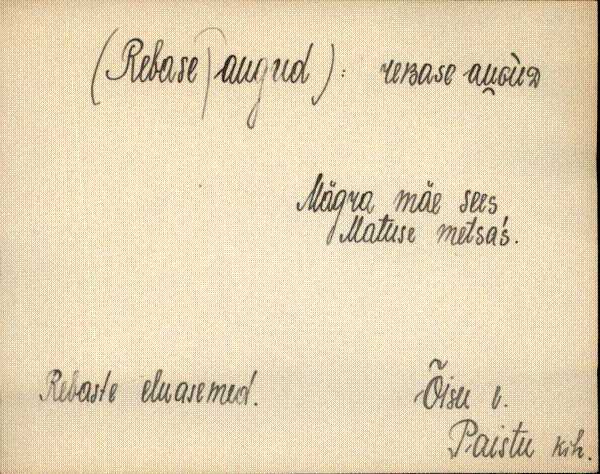 (Rebase) augud): reʙase au̯ɢùᴅ
Mägra mäe sees
Matuse metsaś.
Rebaste eluasemed.
Õisu v.
Paistu kih.